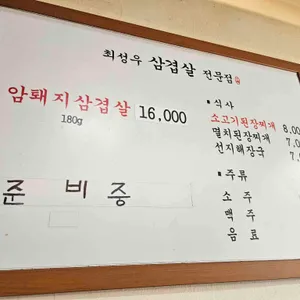 최성우 삼겹살 전문점
암퇘지삼겹살 16,000
180g
준 비 중
▪ 식사
소고기된장찌개 8,00
멸치된장찌개 7,0
선지해장국 7,
▪ 주류
소 주
맥 주
음 료